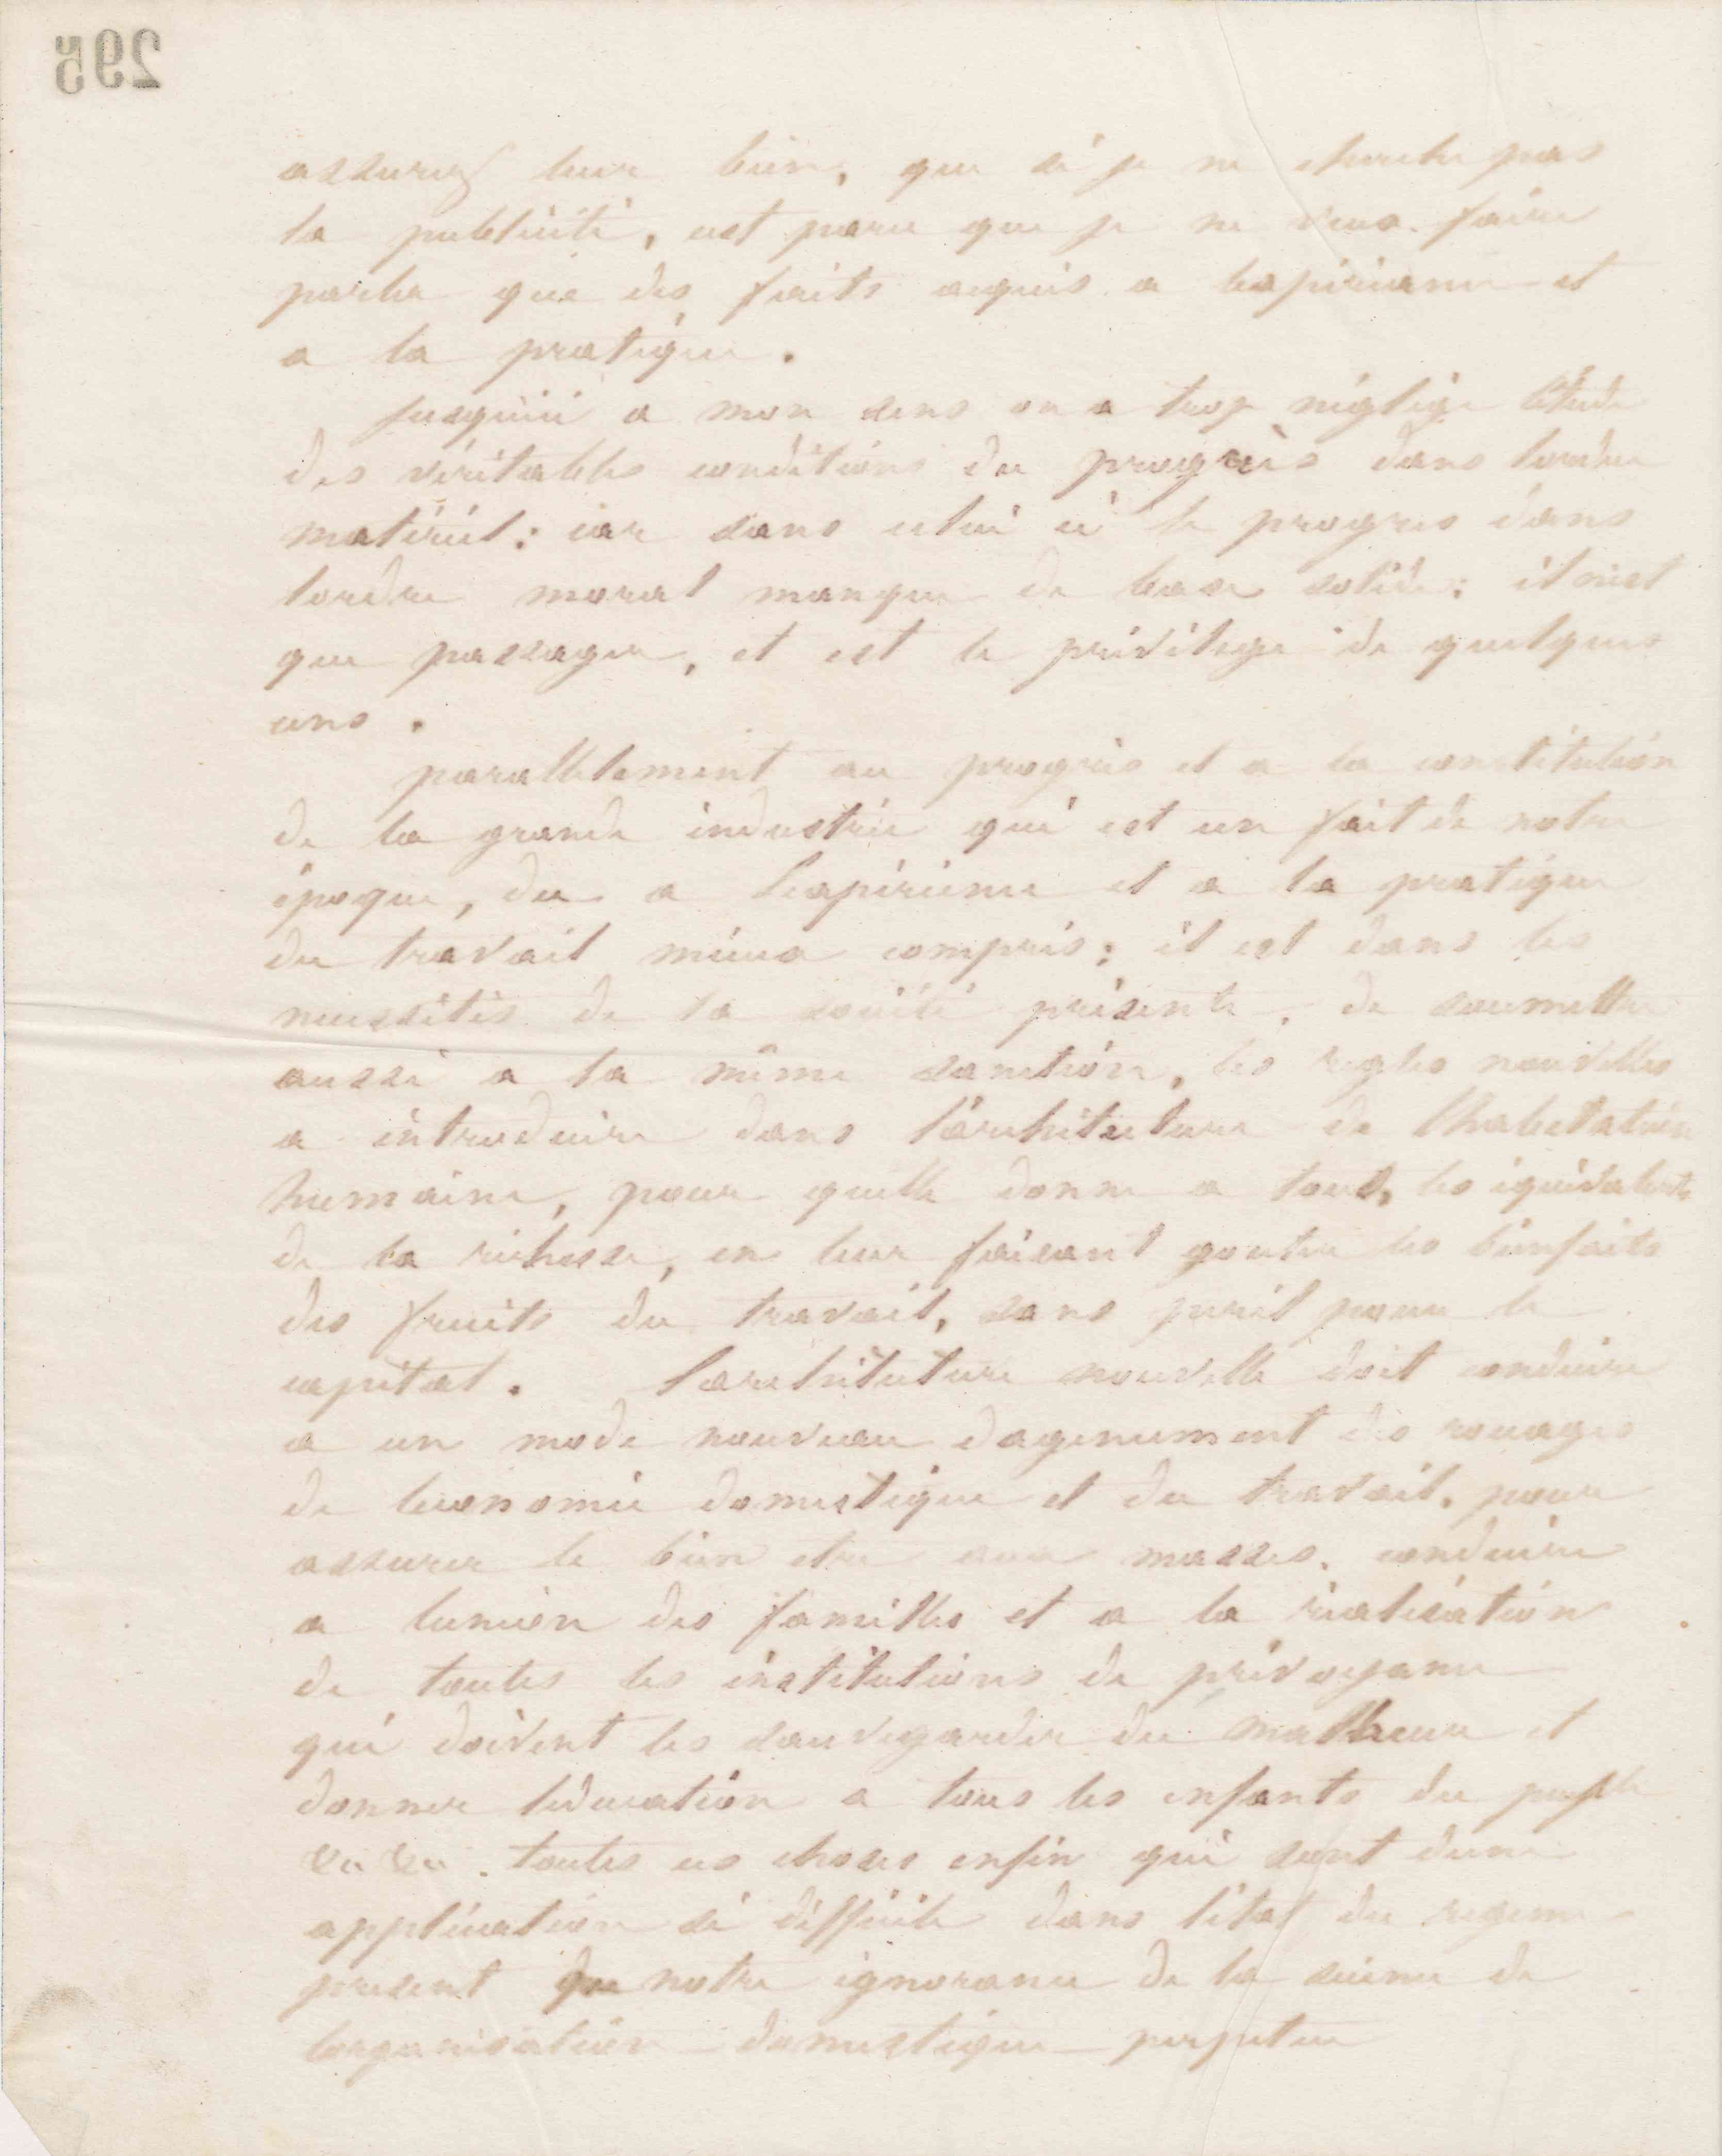 295
assurez leur bien, que si je ne cherche pas
la publicité, cest parce que je ne veux faire
parler que des faits acquis a lexpérience et
a la pratique.
Jusquici a mon sens on a trop négligé létude
des véritables conditions du progrès dans lordre
matériel: car sans celui ci le progres dans
lordre moral manque de base solide: il nest
que passager, et est le privilege de quelques
uns.
parallelement au progrès et a la constitution
de la grande industrie qui est un fait de notre
époque, du a lexpérience et a la pratique
du travail mieux compris; il est dans les
necessités de la société présente, de soumettre
aussi a la même sanction, les regles nouvelles
a introduire dans l'architecture de lhabitation
humaine, pour quelle donne a tous, les équivalents
de la richesse, en leur faisant gouter les bienfaits
des fruits du travail, sans peril pour le
capital. Larchitecture nouvelle doit conduire
a un mode nouveau dagencement des rouages
de leconomie domestique et du travail, pour
assurer le bien etre aux masses, conduire
a lunion des familles et a la réalisation
de toutes les institutions de prévoyance
qui doivent les sauvegarder du malheur et
donner léducation a tous les enfants du peuple
toutes ces choses enfin qui sont dune
application si difficile dans létat du regime
present que notre ignorance de la science de
lorganisation domestique perpetue